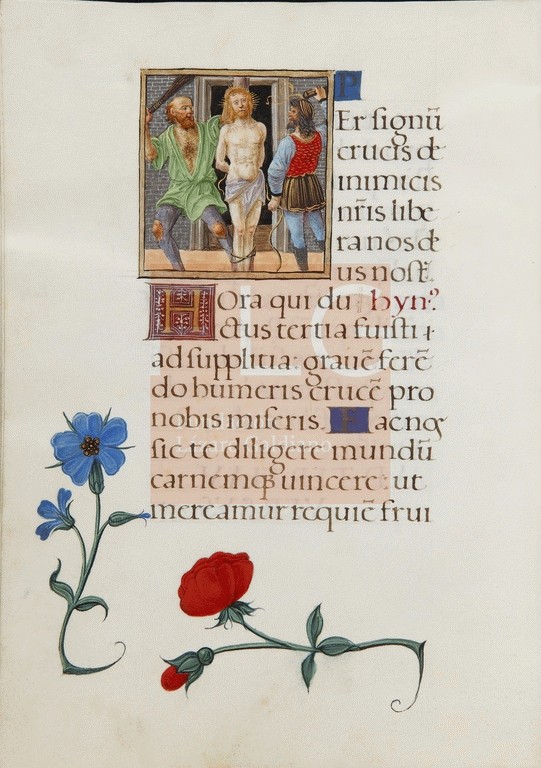 PEr signū
crucis de
inimicis
nr̄is libe
ra nos de
us nost̄.
Hora qui du hyn?
ctus tertia fuisti +
ad supplitia: grauē ferē
do humeris crucē pro
nobis miseris. Fac nos
sic te diligere mundū
carnemqꝫ uincere: ut
mereamur requiē frui
LG